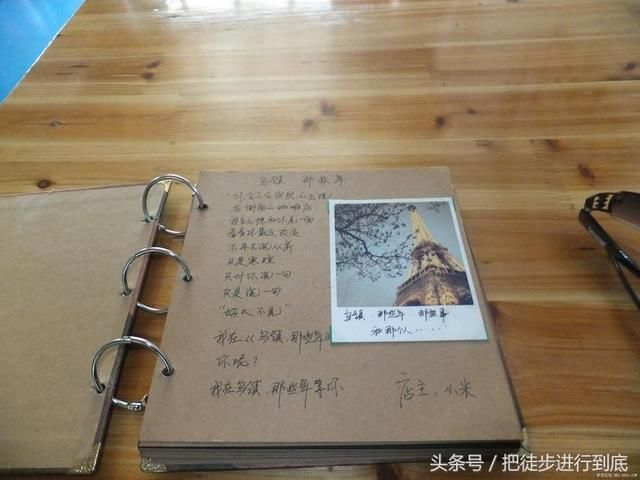 乌镇 那些年
"你会不会突然的出现
在街角的咖啡店
我多么想和你见一面
看看你最近改变
不再去说从前
只是寒暄
只对你说一句
只是说一句
"好久不见"
我在从乌镇、那些年
你呢?
我在乌镇、那些年等你
店主:小米
乌镇、那些年、那些事
和那个人……
头条号 / 把徒步进行到底